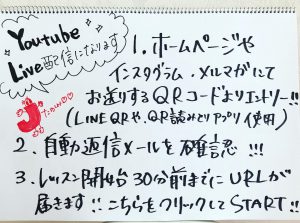 Youtube
Live配信になります
たかみ♡♡
1. ホームページや
インスタグラム・メルマガにて
お送りするQRコードよりエントリー!!
(LINE QRや、QR読みとりアプリ使用)
2. 自動返信メールを確認!!!
3. レッスン開始30分前までにURLが
届きます!!こちらをクリックしてSTART!!